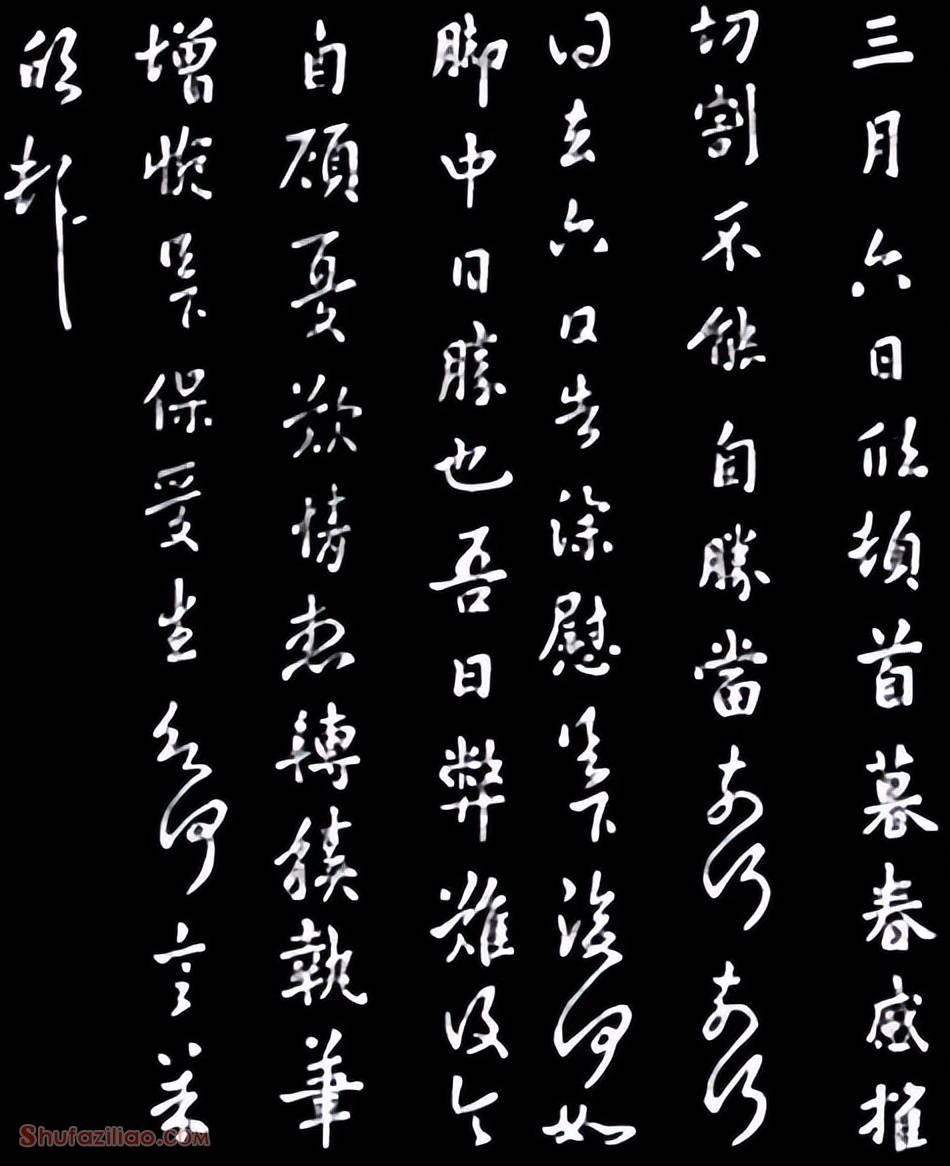 三月六日欣頓首暮春感摧
切割不能自勝當奈何奈何
得去六日告深慰足下復何如
腳中日勝也吾日弊難復令
自顧憂歎情想轉積執筆
增惋足下保愛何言羊
欣頓
Shufaziliao.com